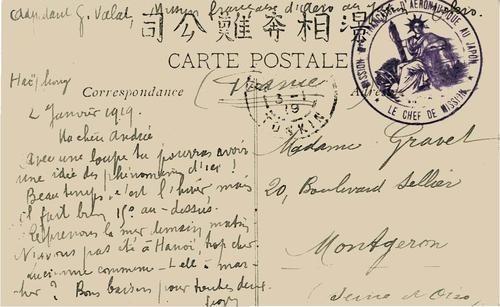 Commandant G. Valat, Mission française d'Aéro au Japon
司公難奔相
CARTE POSTALE
(France)
Correspondance
MISSION FRANÇAISE D'AÉRONAUTIQUE AU JAPON
LE CHEF DE MISSION
3-1
19
Haïphong
2 Janvier 1919.
Ma chère Andrée
Avec une loupe tu pourras avoir
une idée des phénomènes d'ici!
Beau temps, c'est l'hiver mais
il fait bon 15° au-dessus.
Reprenons la mer demain matin
N'avons pas été à Hanoï, trop cher.
Lucienne commence-t-elle à mar-
cher? Bons baisers pour toutes deux.
Madame Gravet
20, Boulevard Sellier
Montgeron
Seine et Oise